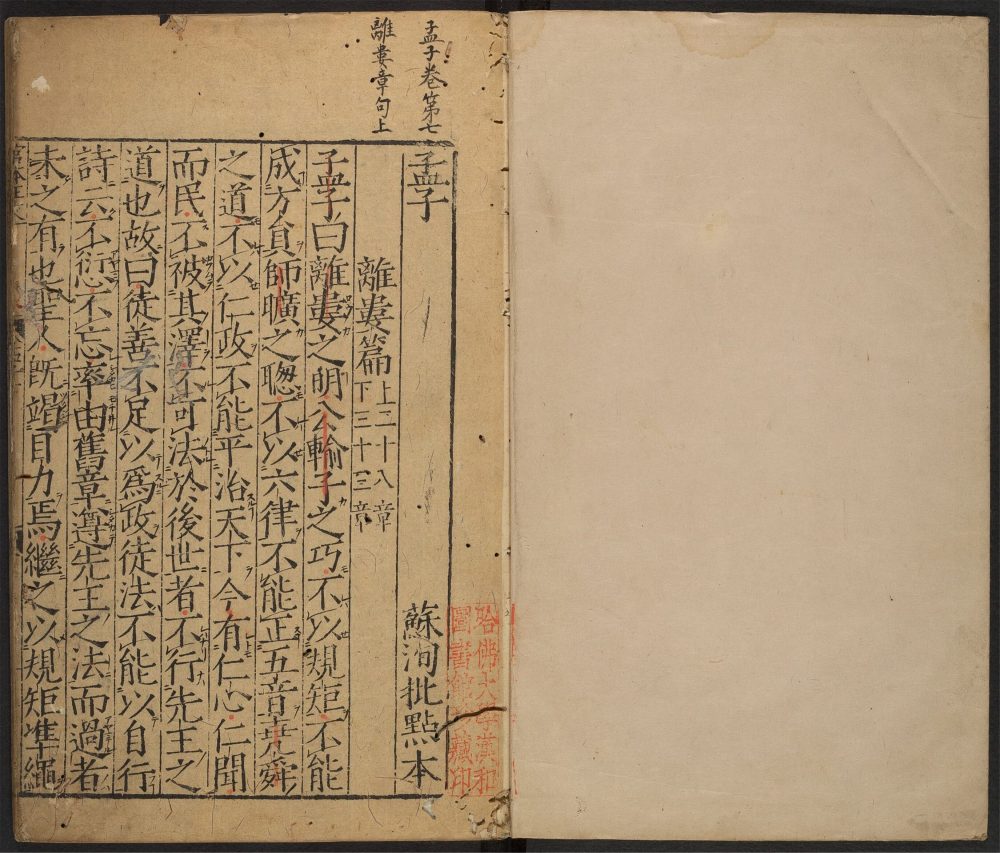 孟子卷第七
離婁章句上
孟子
蘇洵批點本
離婁篇
上二十八章
下三十三章
孟子曰離婁之明公輸子之巧不以規矩不能
成方員師曠之聦不以六律不能正五音堯舜
之道不以仁政不能平治天下今有仁心仁聞
而民不被其澤不可法於後世者不行先王之
道也故曰徒善不足以爲政徒法不能以自行
詩云不愆不忘率由舊章遵先王之法而過者
未之有也聖人旣竭目力焉繼之以規矩準繩
哈佛大學漢和
圖書館珍藏印